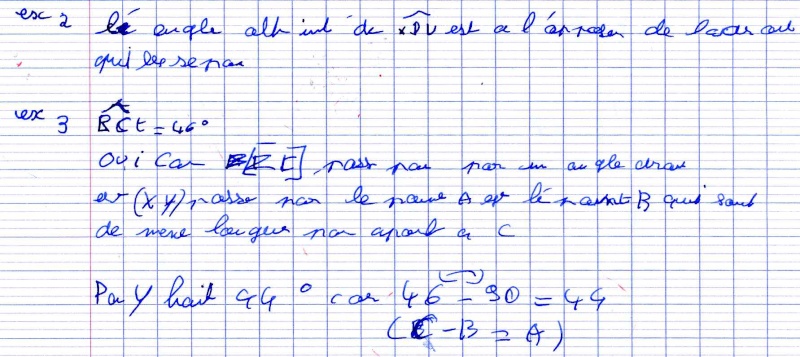 ex 2 lé angle alt int de xDU est a l'opposer de
qui les separ
ex 3 BCE = 46°
oui car [EC] pass par un angle droi
et (XY) passe par le poin A et lé point B qui sont
de meme longeur par aport a C
44° car 46 - 90 = 44
(C - B = A)